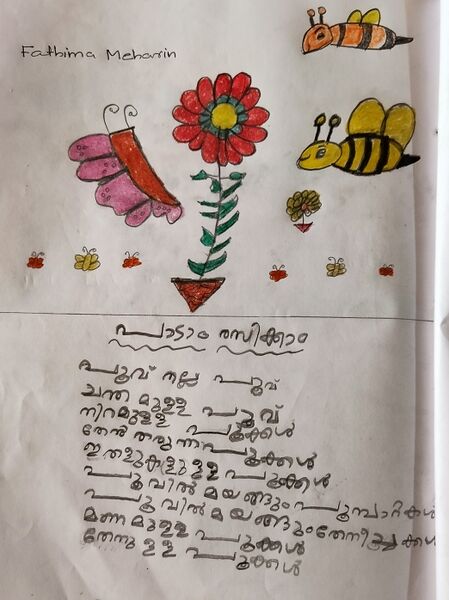 Fathima Meharin
പാടാം രസിക്കാം
പൂവ് നല്ല പൂവ്
ചന്ത മുള്ള പൂവ്
നിറമുള്ള പൂക്കൾ
തേൻ തരുന്ന പൂക്കൾ
ഇതളുകളുള്ള പൂക്കൾ
പൂവിൽ മയങ്ങും പൂമ്പാറ്റകൾ
പൂവിൽ മയങ്ങും തേനീച്ചകൾ
മണമുള്ള പൂക്കൾ
തേനുള്ള പൂക്കൾ